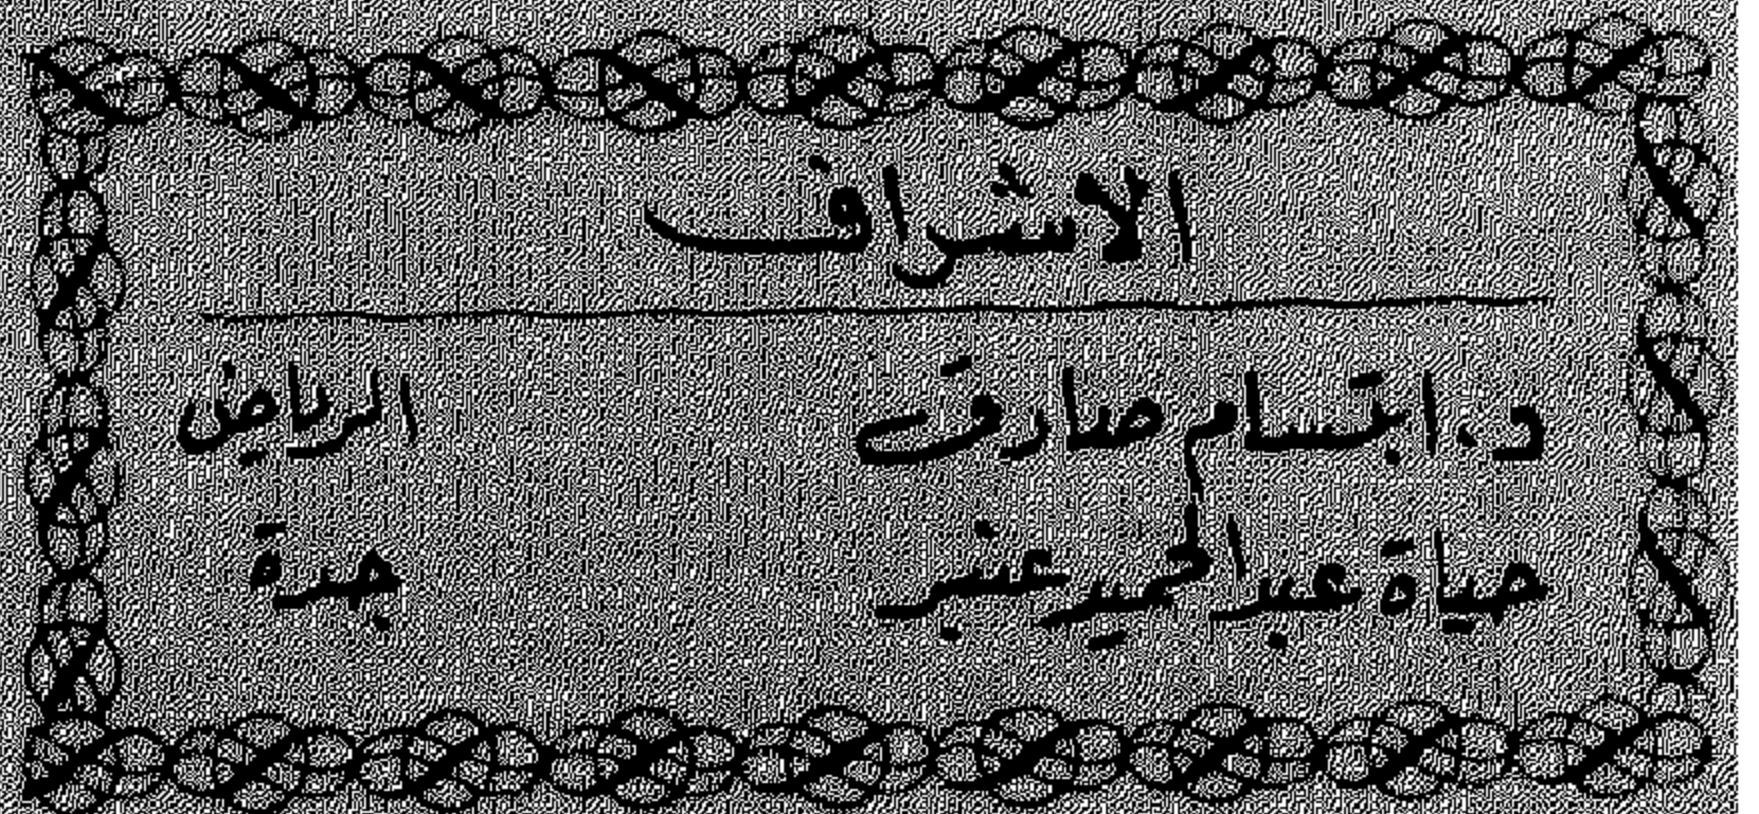 الاشراف
د. ابتسام صادق الرياض
حياة عبد الحميد عنبر جدة